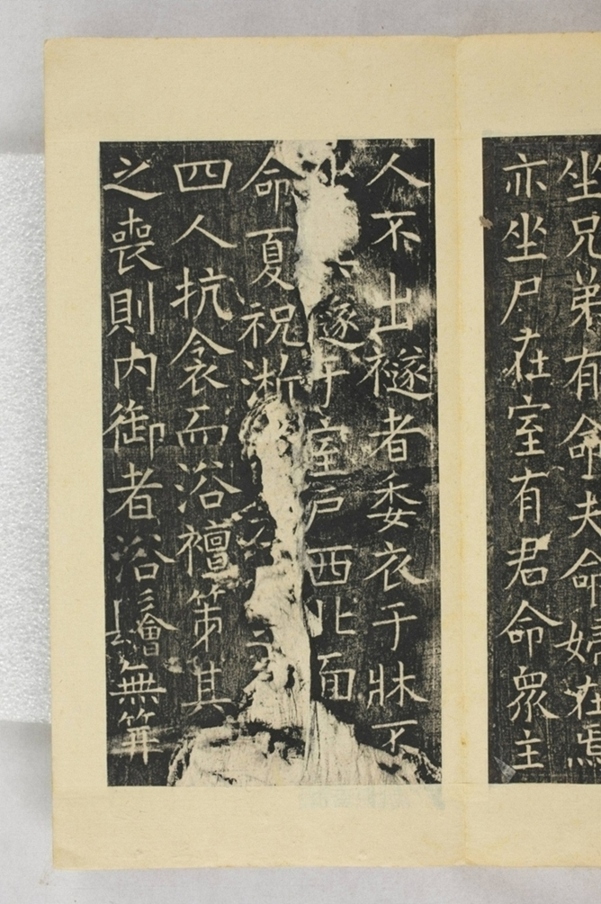 坐兄弟有命夫命婦在焉
亦坐尸在室有君命眾主
人不出襚者委衣于牀不
襚于室戶西北面
命夏祝淅
四人抗衾而浴襢笫其
之喪則內御者浴鬠無笄